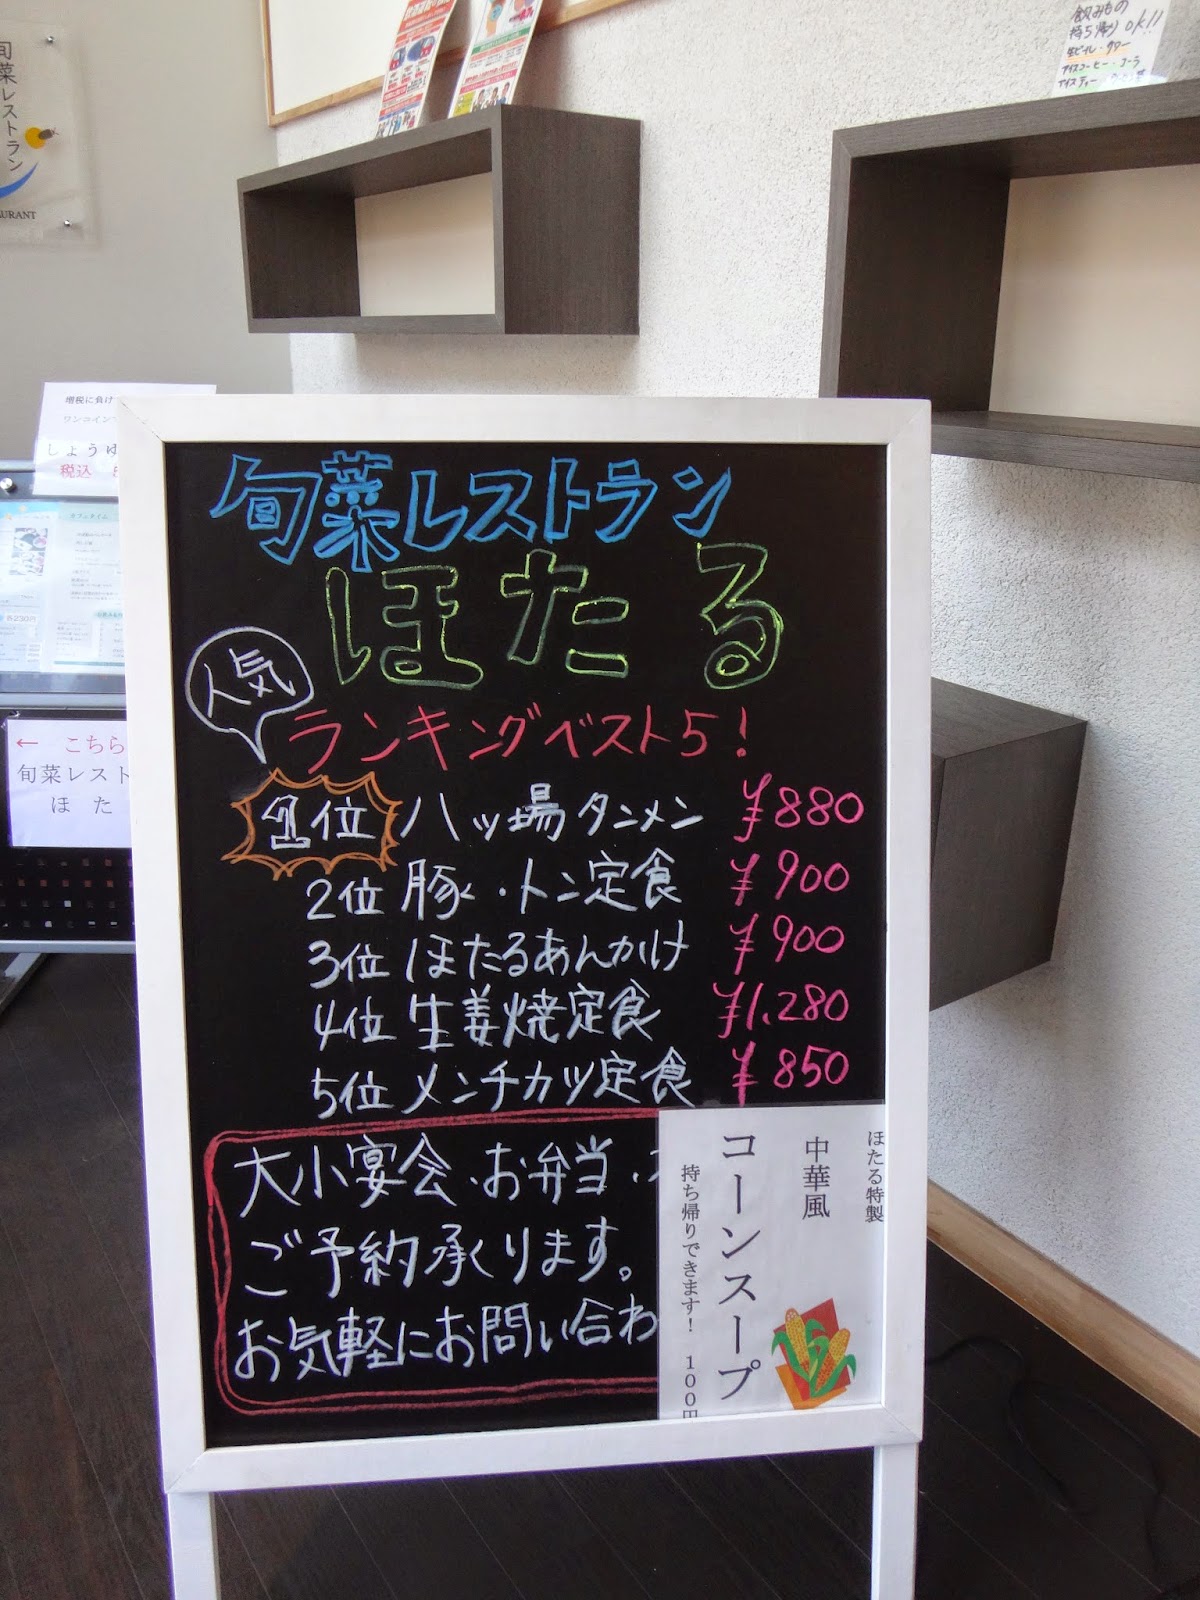 旬菜レストラン
URANT
飲みもの
持ち帰り OK!!
アイスコーヒー・コーラ
増税に負け
ワンコイン
しょうゆ
税込
各230円
← こちら
旬菜レスト
ほた
旬菜レストラン
ほたる
人気
ランキングベスト5!
1位 八ッ場タンメン ¥880
2位 豚・トン定食 ¥900
3位 ほたるあんかけ ¥900
4位 生姜焼定食 ¥1,280
5位 メンチカツ定食 ¥850
大小宴会・お弁当・
ご予約承ります。
お気軽にお問い合わ
ほたる特製
中華風
コーンスープ
持ち帰りできます! 100円